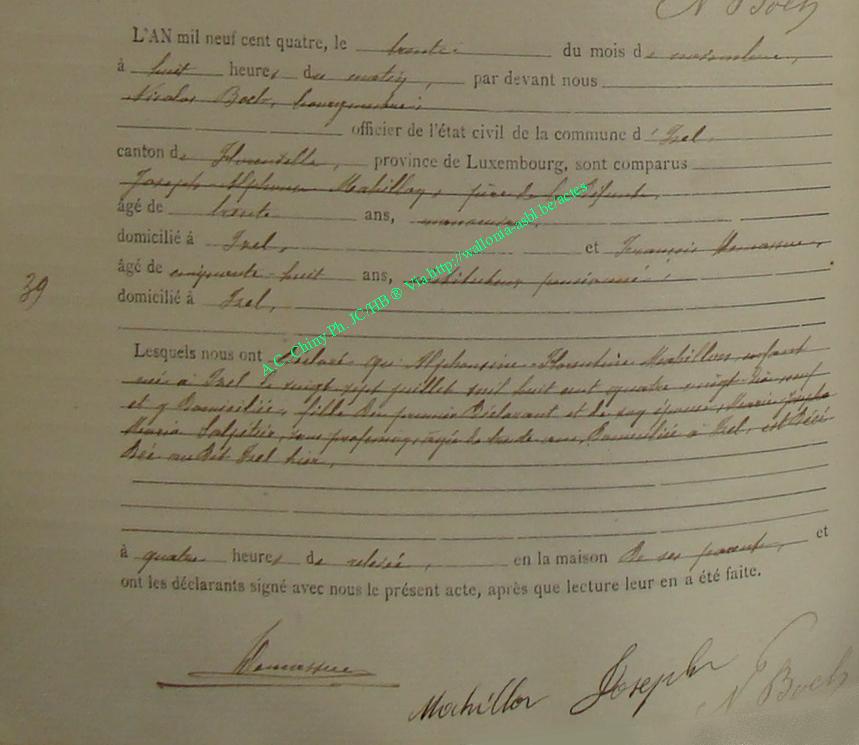 N Boeb
L'AN mil neuf cent quatre, le trente du mois de novembre,
à huit heures du matin, par devant nous
Nicolas Boeb, bourgmestre,
officier de l'état civil de la commune d'Izel,
canton de Florenville, province de Luxembourg, sont comparus
Joseph Alphonse Mahillon, père de la défunte,
âgé de trente ans, manoeuvre,
domicilié à Izel, et François
âgé de cinquante huit ans, instituteur pensionné,
39
domicilié à Izel,
Lesquels nous ont déclaré que Alphonsine Florentine Mahillon, enfant
née à Izel le vingt sept juillet mil huit cent quatre vingt dix neuf
et y domiciliée, fille du premier déclarant et de son épouse, Marie
Maria Salpétier, sans profession, âgée de trente ans, domiciliée à Izel, est décé
dée au dit Izel hier,
à quatre heures de relevée, en la maison de ses parents, et
ont les déclarants signé avec nous le présent acte, après que lecture leur en a été faite.
Mahillon Joseph N Boeb
A.C. Chiny Ph. JC/HB ® Via http://wallonia-asbl.be/actes